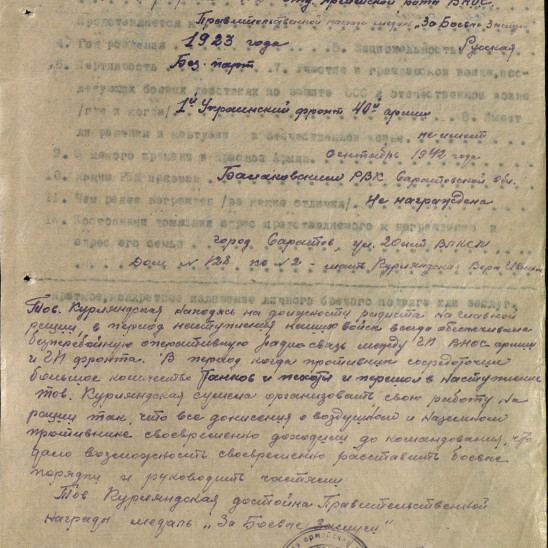 отд. Армейской роты ВНОС
Представляется к Правительственной награде медаль „За Боевые Заслуги"
4. Год рождения 1923 года 5. Национальность Русская
6. Партийность Без. парт 7. Участие в гражданской войне, пос-
ледующих боевых действиях по защите СССР и отечественной войне
/где и когда/ 1й Украинский фронт 40й армии 8. Имеет
ли ранения и контузии в отечественной войне не имеет
9. С какого времени в Красной Армии. Сентябрь 1942 года
10. Каким РВК призван Балаковским РВК Саратовской обл.
11. Чем ранее награжден /за какие отличия/ Не награждена
12. Постоянный домашний адрес представляемого к награждению и
адрес его семьи город Саратов, ул. 20 лет ВЛКСМ
Дом № 128 кв № 2 - мать Курляндская Вера
Краткое, конкретное изложение личного боевого подвига или заслуг.
Тов. Курляндская находясь на должности радиста на главной
рации, в период наступления наших войск всегда обеспечивала
безперебойную оперативную радиосвязь между ГП ВНОС армии
и ГП фронта. В период когда противник сосредоточил
большое количество Танков и пехоты и перешел в наступление
тов. Курляндская сумела организовать свою работу на
рации так, что все донесения о воздушном и наземном
противнике своевременно доходили до командования, что
дало возможность своевременно расставить боевые
порядки и руководить частями
Тов Курляндская достойна Правительственной
награды медаль „За Боевые Заслуги"